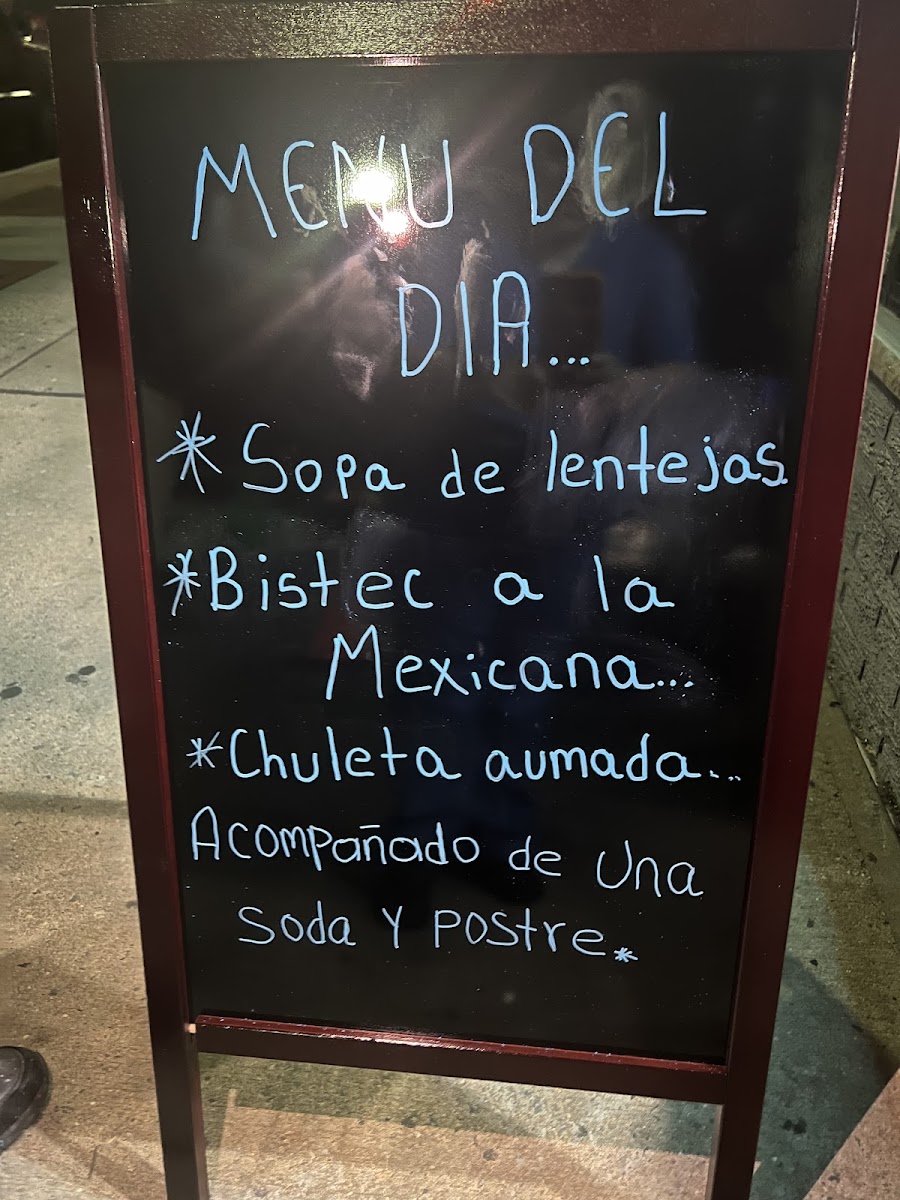 MENU DEL
DIA...
*Sopa de lentejas.
*Bistec a la
Mexicana...
*Chuleta aumada...
Acompañado de Una
soda Y postre*